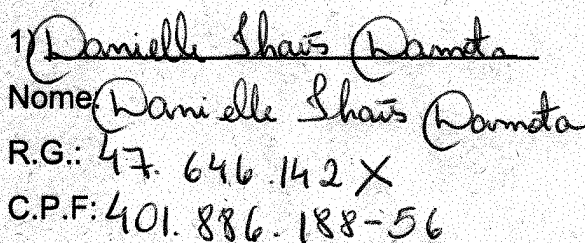 1) Danielle Thaís Damota
Nome: Danielle Thaís Damota
R.G.: 47. 646.142 X
C.P.F: 401. 886. 188-56